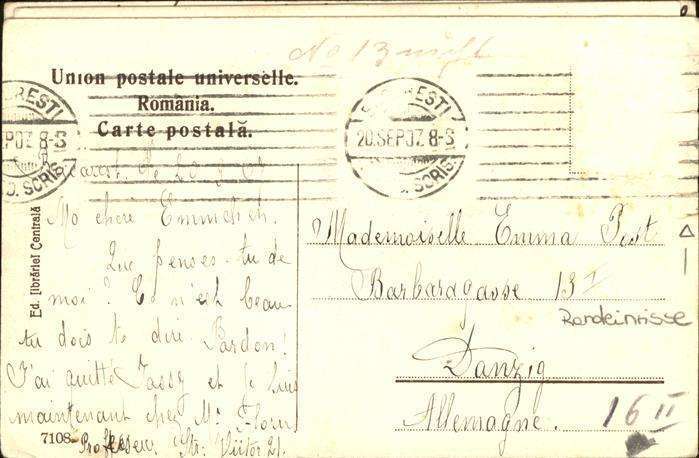 No 13
Union postale universelle.
România.
Carte postală.
BUCUREȘTI
20.SEP.07. 8-S
SCRIS.
SEP 07 8-S
SCRIS.
le 20
Ma chère Emmchen.
Que penses-tu de
moi? C. n'est beau
tu dois te dire Pardon!
J'ai quitté Jassy et je suis
maintenant chez M.
Professeur Str. Viitor 21.
Ed. Librăriei Centrală
7108
Mademoiselle Emma Post
Barbaragasse 13 I
Randeinrisse
Danzig
Allemagne.
16 II